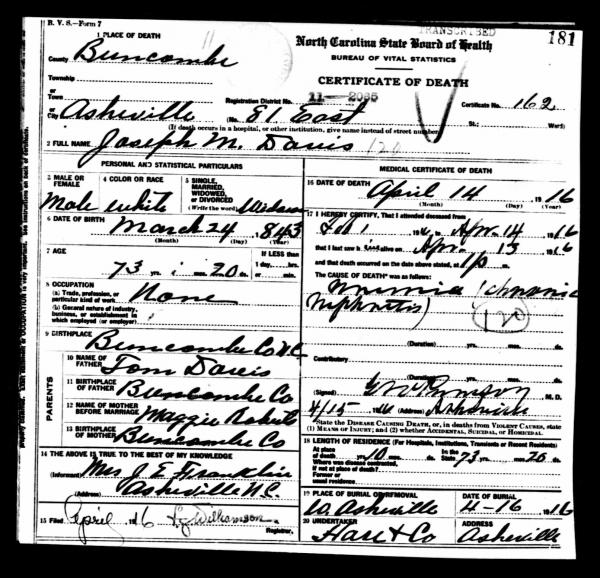 R. V. S.—Form 7
TRANSCRIBED
181
1 PLACE OF DEATH
County Buncombe
North Carolina State Board of Health
BUREAU OF VITAL STATISTICS
CERTIFICATE OF DEATH
Township
or Town
or City Asheville
Registration District No. 11-2085
Certificate No. 162
(No. 81 East St.; Ward)
(If death occurs in a hospital, or other institution, give name instead of street number)
2 FULL NAME Joseph M. Davis
120
PERSONAL AND STATISTICAL PARTICULARS
3 MALE OR FEMALE Male
4 COLOR OR RACE white
5 SINGLE, MARRIED, WIDOWED, OR DIVORCED (Write the word)
6 DATE OF BIRTH March 24, 1843
(Month) (Day) (Year)
7 AGE 73 yrs. 1 mos. 20 ds.
If LESS than 1 day, hrs. or min.
8 OCCUPATION
(a) Trade, profession, or particular kind of work None
(b) General nature of industry, business, or establishment in which employed (or employer)
9 BIRTHPLACE Buncombe Co N.C.
PARENTS
10 NAME OF FATHER Tom Davis
11 BIRTHPLACE OF FATHER Buncombe Co
12 NAME OF MOTHER BEFORE MARRIAGE Maggie Roberts
13 BIRTHPLACE OF MOTHER Buncombe Co
14 THE ABOVE IS TRUE TO THE BEST OF MY KNOWLEDGE
(Informant) Mrs J. E. Franklin
(Address) Asheville N.C.
15 Filed April 1916 Williamson
Registrar.
MEDICAL CERTIFICATE OF DEATH
16 DATE OF DEATH April 14 1916
(Month) (Day) (Year)
17 I HEREBY CERTIFY, That I attended deceased from
Feb 1 to Apr. 14 1916
that I last saw him alive on Apr. 13 1916
and that death occurred on the date above stated, at 1 p
The CAUSE OF DEATH* was as follows:
Uremia (chronic
nephritis)
120
(Duration) yrs. mos. ds.
Contributory
(Duration) yrs. mos. ds.
(Signed) M. D.
4/15 1916 (Address) Asheville
*State the DISEASE CAUSING DEATH, or, in deaths from VIOLENT CAUSES, state (1) MEANS OF INJURY; and (2) whether ACCIDENTAL, SUICIDAL, or HOMICIDAL.
18 LENGTH OF RESIDENCE (For Hospitals, Institutions, Transients or Recent Residents)
At place of death 10 yrs. mos. ds. In the State 73 yrs. mos. 20 ds.
Where was disease contracted, if not at place of death?
Former or usual residence
19 PLACE OF BURIAL OR REMOVAL W. Asheville
DATE OF BURIAL 4-16 1916
20 UNDERTAKER Hare & Co
ADDRESS Asheville